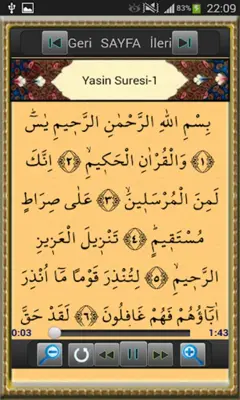 22:09
Geri SAYFA İleri
Yasin Suresi-1
بِسْمِ اللّٰهِ الرَّحْمٰنِ الرَّح۪يمِ يٰسٓۜ
﴿١﴾ وَالْقُرْاٰنِ الْحَك۪يمِۙ ﴿٢﴾ اِنَّكَ
لَمِنَ الْمُرْسَل۪ينَۙ ﴿٣﴾ عَلٰى صِرَاطٍ
مُسْتَق۪يمٍۜ ﴿٤﴾ تَنْز۪يلَ الْعَز۪يزِ
الرَّح۪يمِۙ ﴿٥﴾ لِتُنْذِرَ قَوْمًا مَٓا اُنْذِرَ
اٰبَٓاؤُ۬هُمْ فَهُمْ غَافِلُونَ ﴿٦﴾ لَقَدْ حَقَّ
0:03 1:43